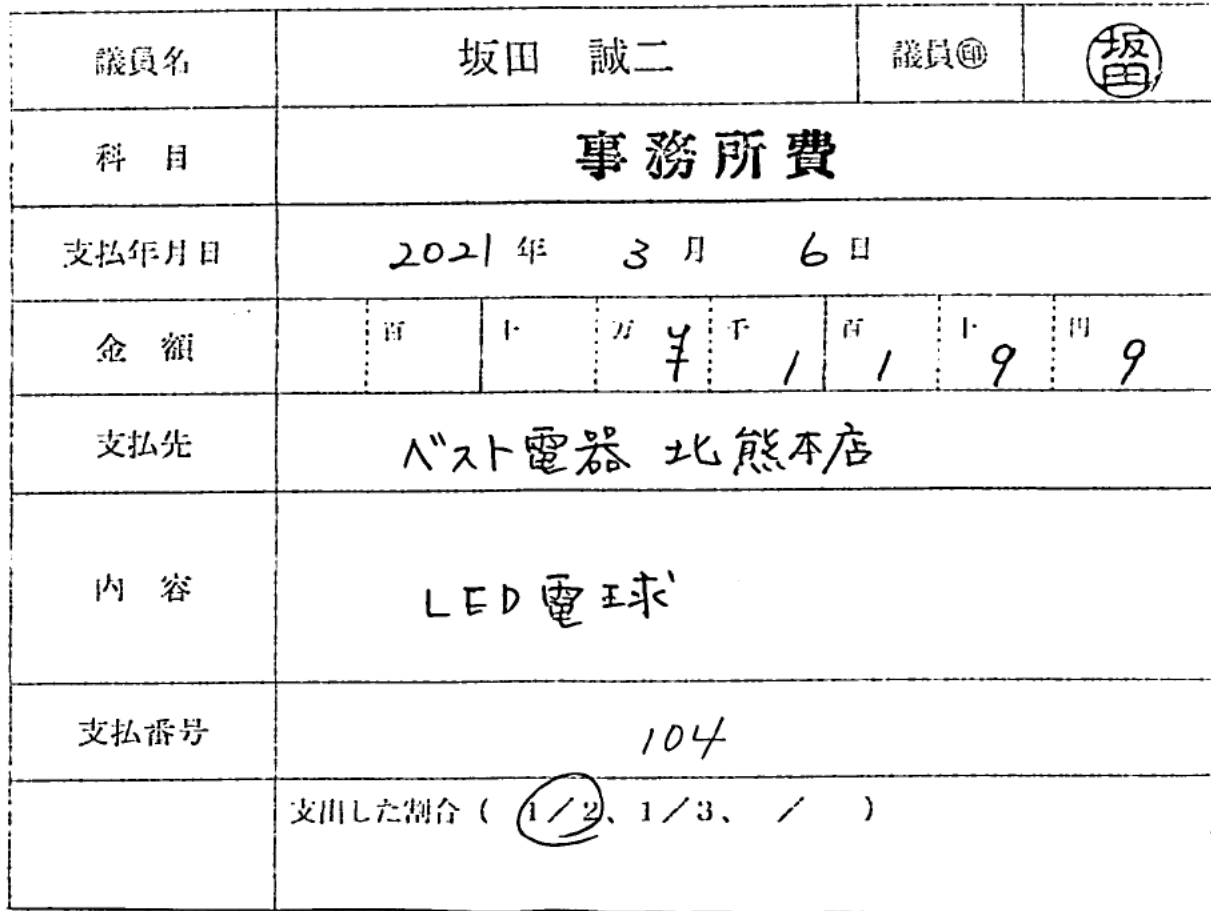 議員名 坂田 誠二 議員㊞ 坂田
科 目 事務所費
支払年月日 2021年 3月 6日
金 額 百 十 万 ¥ 千 1 百 1 十 9 円 9
支払先 ベスト電器 北熊本店
内 容 LED電球
支払番号 104
支出した割合 ( 1/2、1/3、 / )